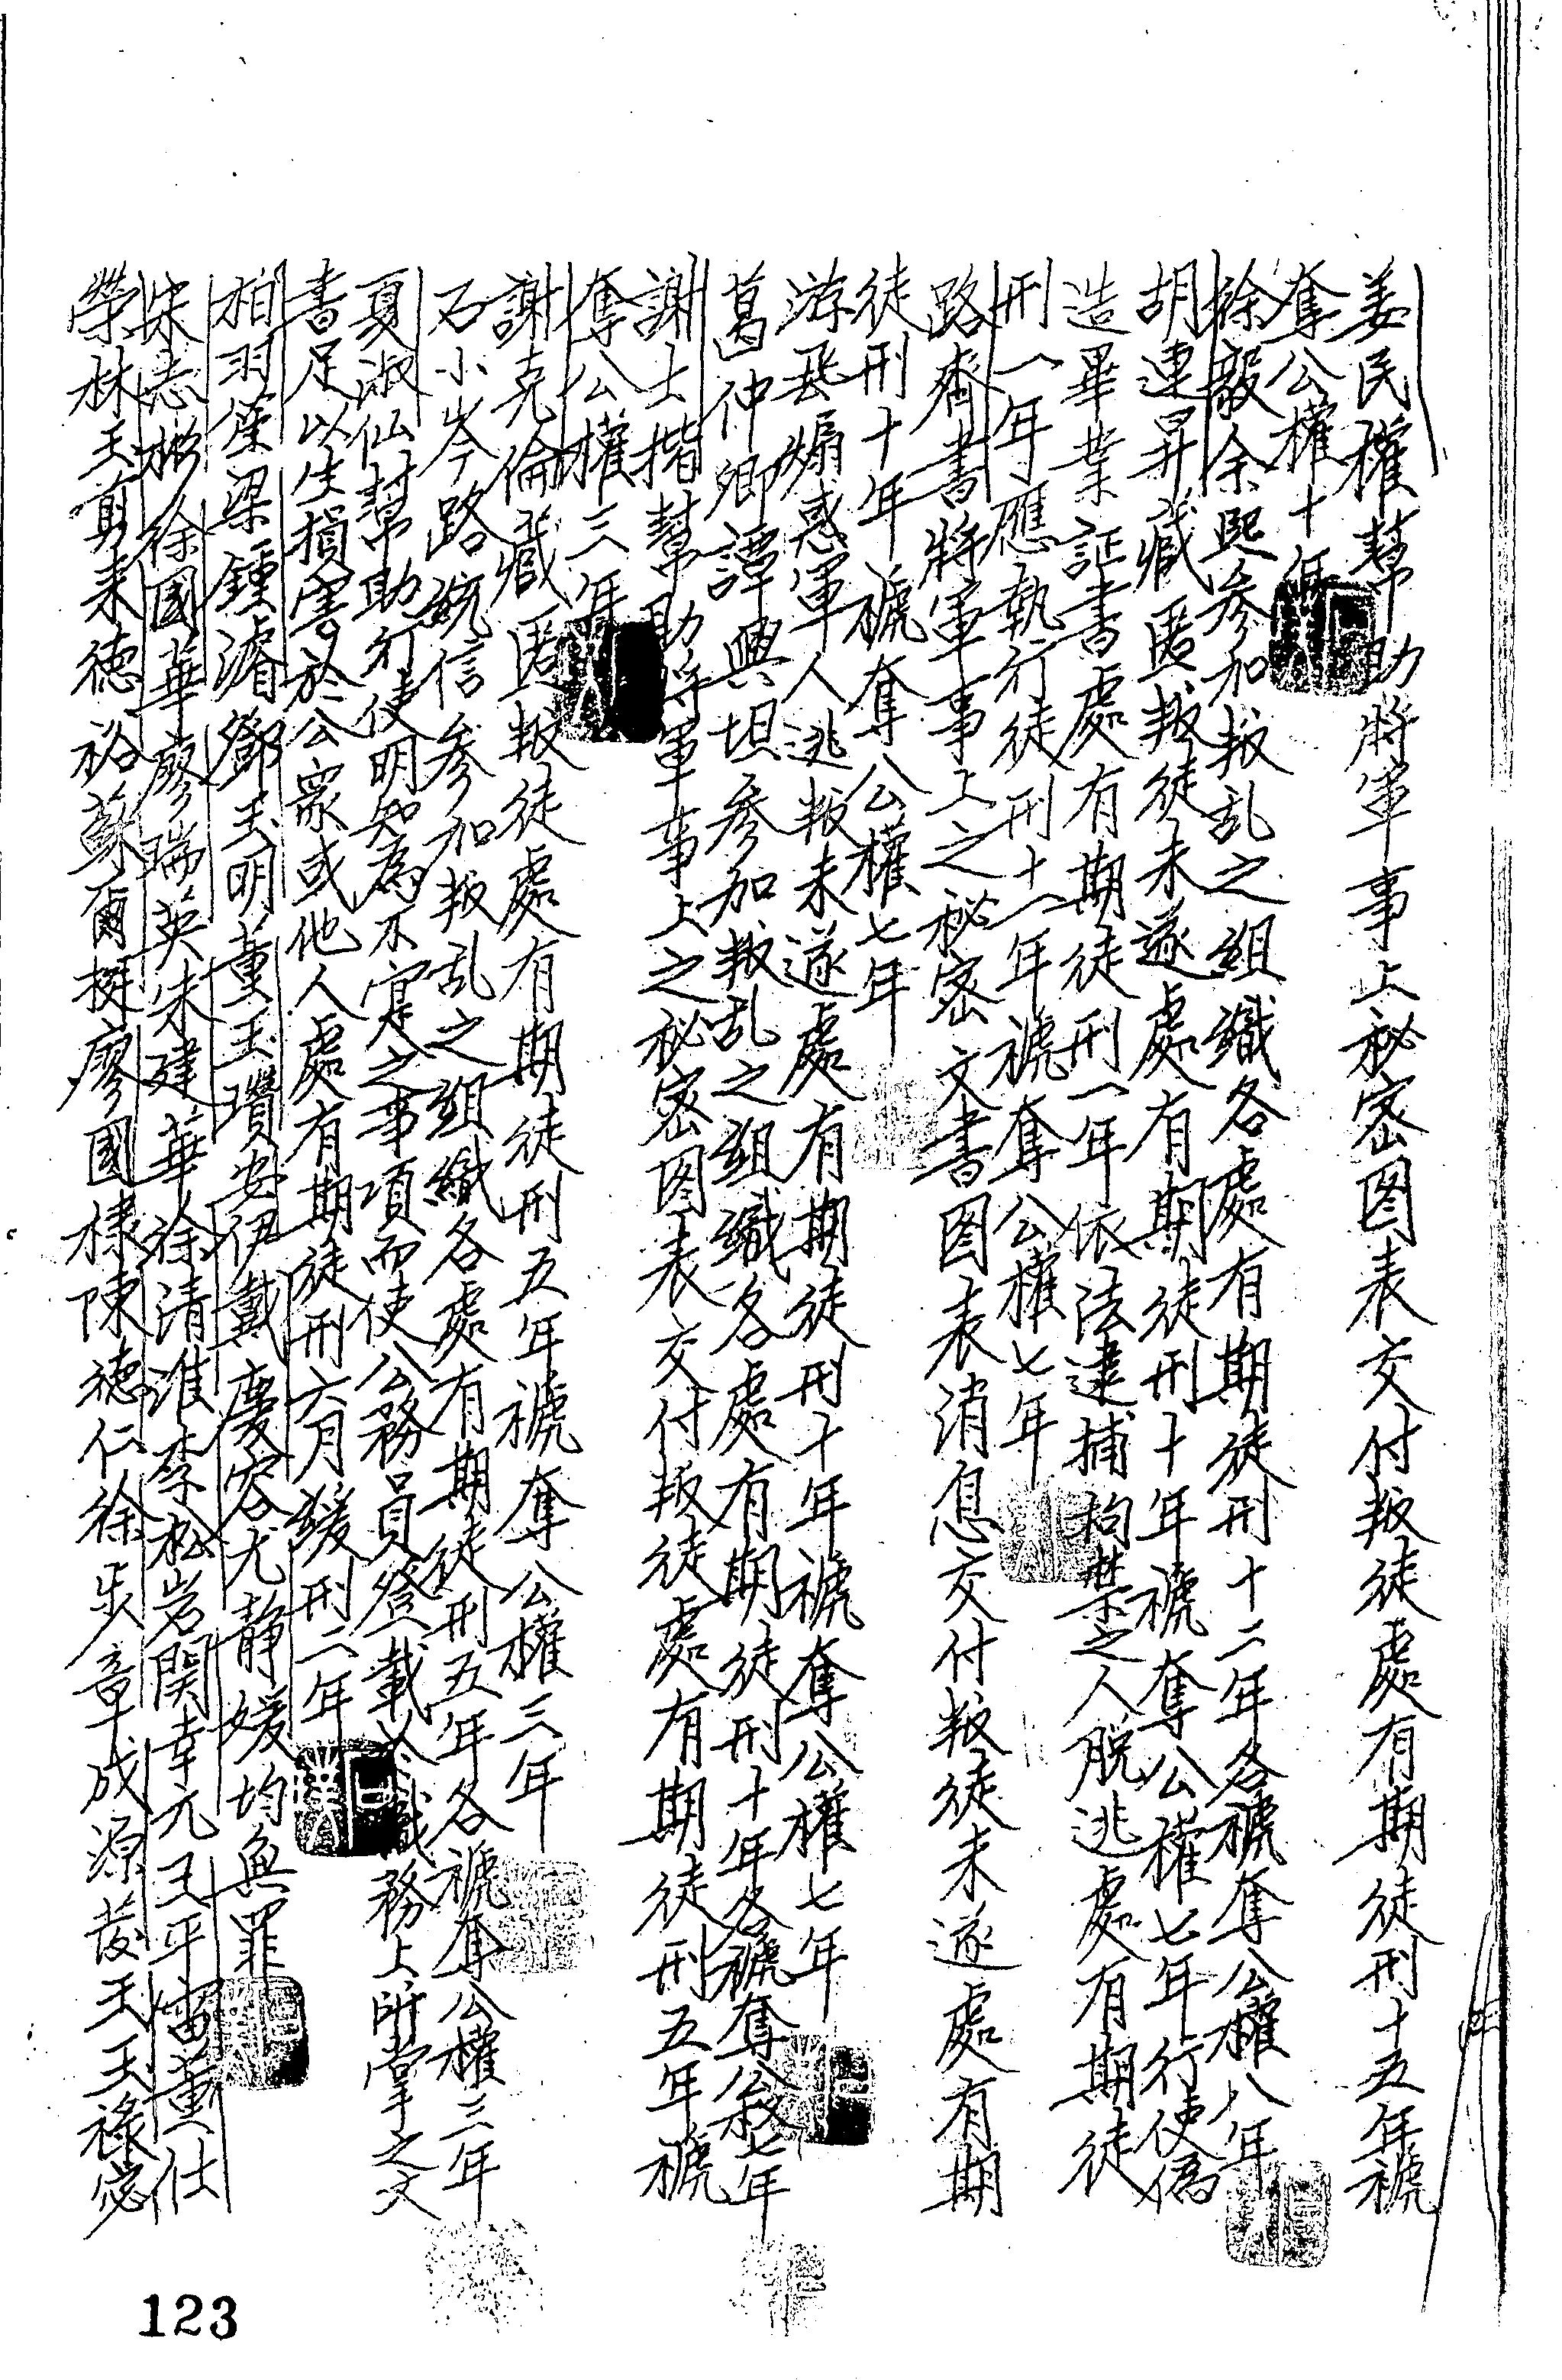 姜民權幫助將軍事上秘密图表交付叛徒處有期徒刑十五年褫
奪公權十年
徐毅余熙参加叛乱之組織各處有期徒刑十二年各褫奪公權八年
胡連昇藏匿叛徒未遂處有期徒刑十年褫奪公權七年行使偽
造畢業証書處有期徒刑一年依法逮捕拘禁之人脫逃處有期徒
刑一年應執行徒刑十一年褫奪公權七年
路齋書將軍事上之秘密文書图表消息交付叛徒未遂處有期
徒刑十年褫奪公權七年
游飛煽惑軍人逃叛未遂處有期徒刑十年褫奪公權七年
葛仲卿譚興坦参加叛乱之組織各處有期徒刑十年各褫奪公權七年
謝士揩幫助將軍事上之秘密图表交付叛徒處有期徒刑五年褫
奪公權三年
謝克倫藏匿叛徒處有期徒刑五年褫奪公權三年
石小岑路統信参加叛乱之組織各處有期徒刑五年各褫奪公權三年
夏淑仙幫助行使明知為不寔之事項而使公務員登載於職務上所掌之文
書足以生損害於公衆或他人處有期徒刑六月緩刑二年
柏羽葆梁鍾濬鄧玉明董玉瓚安伊戴慶容尤静媛均無罪
朱志松徐國華廖瑞英朱建華徐清淮李松岩関幸元王平雷董仕
榮林玉剪来德裕蘇爾挺廖國棣陳德仁徐炎章成源發王玉祿宓
123